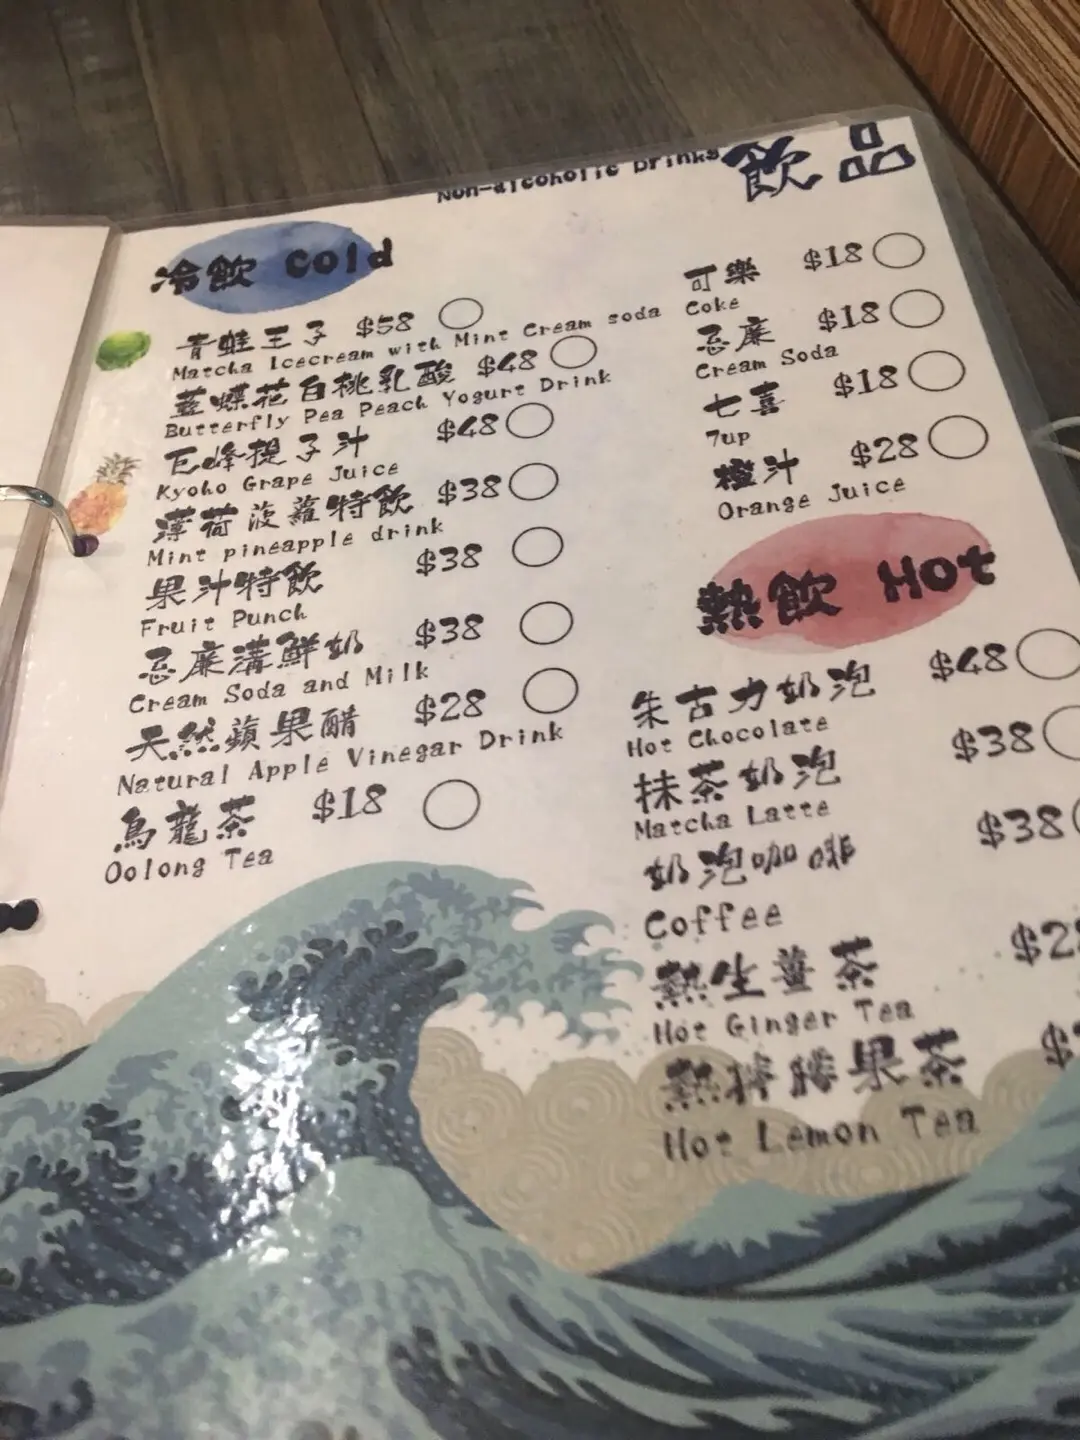 Non-alcoholic Drinks 飲品
冷飲 Cold
青蛙王子 $58
Matcha Icecream with Mint Cream soda
藍蝶花白桃乳酸 $48
Butterfly Pea Peach Yogurt Drink
巨峰提子汁 $48
Kyoho Grape Juice
薄荷菠蘿特飲 $38
Mint pineapple drink
果汁特飲 $38
Fruit Punch
忌廉溝鮮奶 $38
Cream Soda and Milk
天然蘋果醋 $28
Natural Apple Vinegar Drink
烏龍茶 $18
Oolong Tea
可樂 $18
Coke
忌廉 $18
Cream Soda
七喜 $18
7up
橙汁 $28
Orange Juice
熱飲 Hot
朱古力奶泡 $48
Hot Chocolate
抹茶奶泡 $38
Matcha Latte
奶泡咖啡 $38
Coffee
熱生薑茶
Hot Ginger Tea
熱檸檬果茶
Hot Lemon Tea